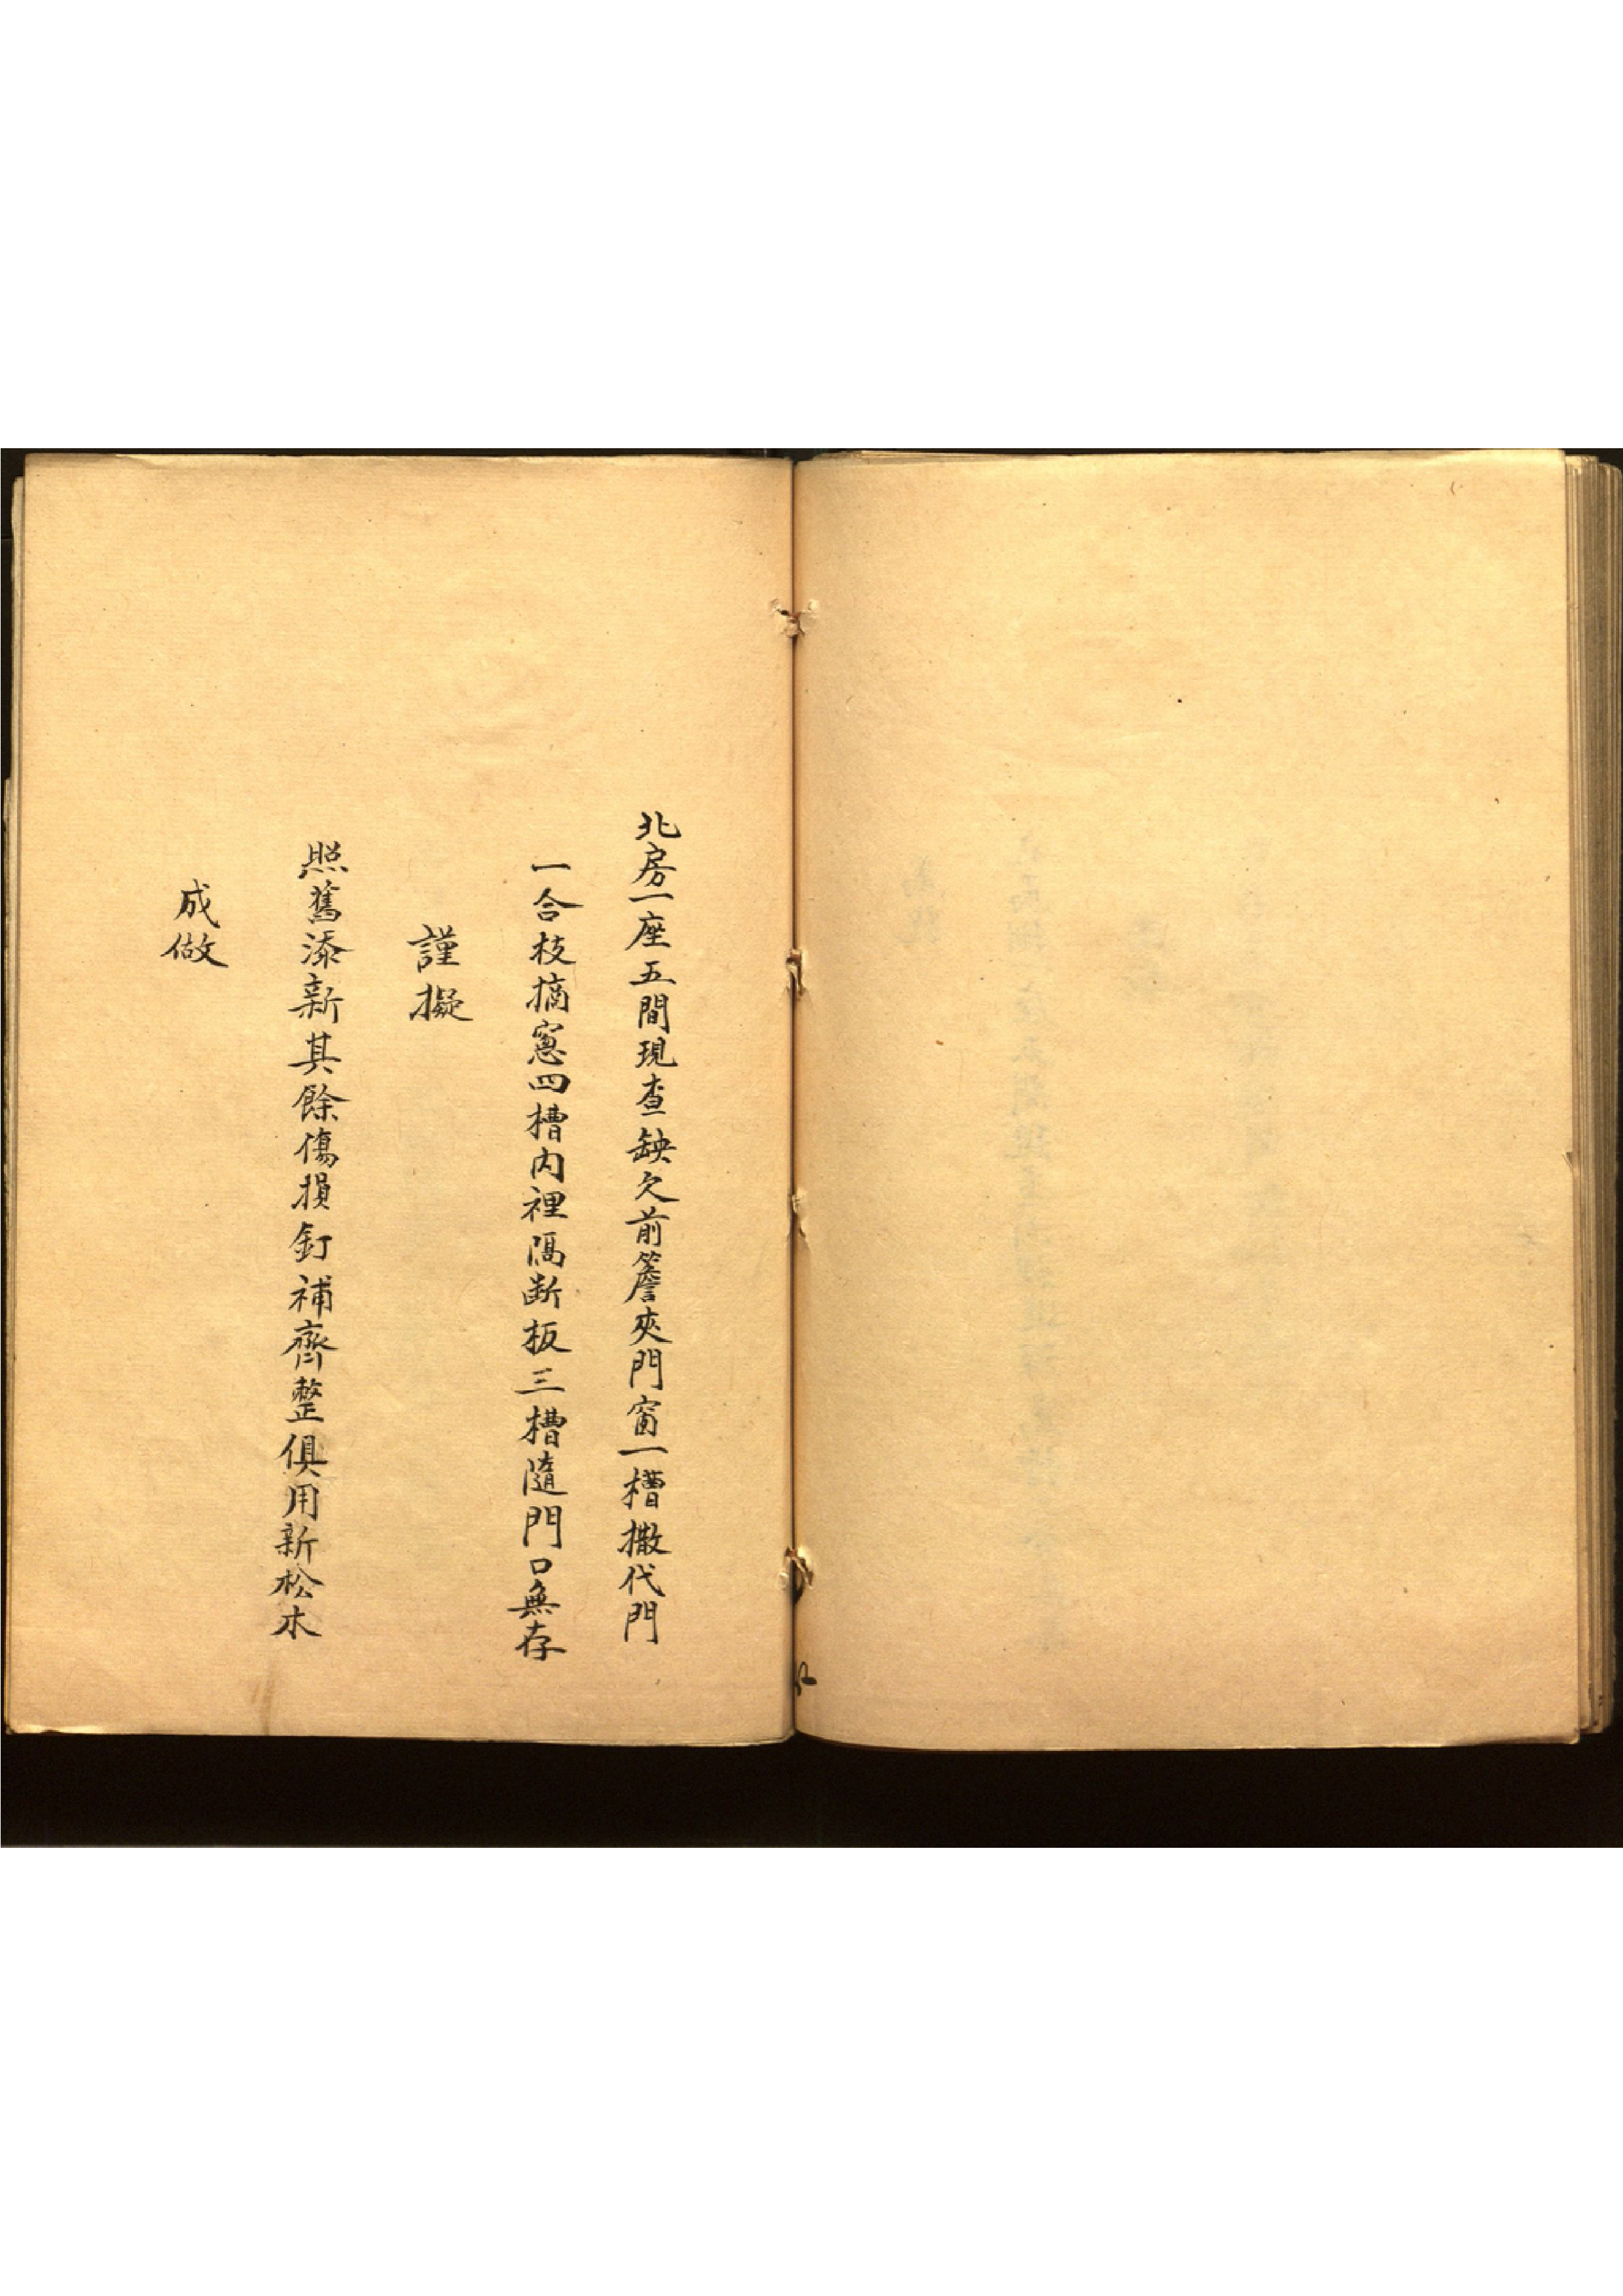 北房一座五間現查缺欠前簷夾門窗一槽撒代門
一合枝摘窻四槽內裡隔断板三槽隨門口無存
謹擬
照舊添新其餘傷損釘補齊整俱用新松木
成做